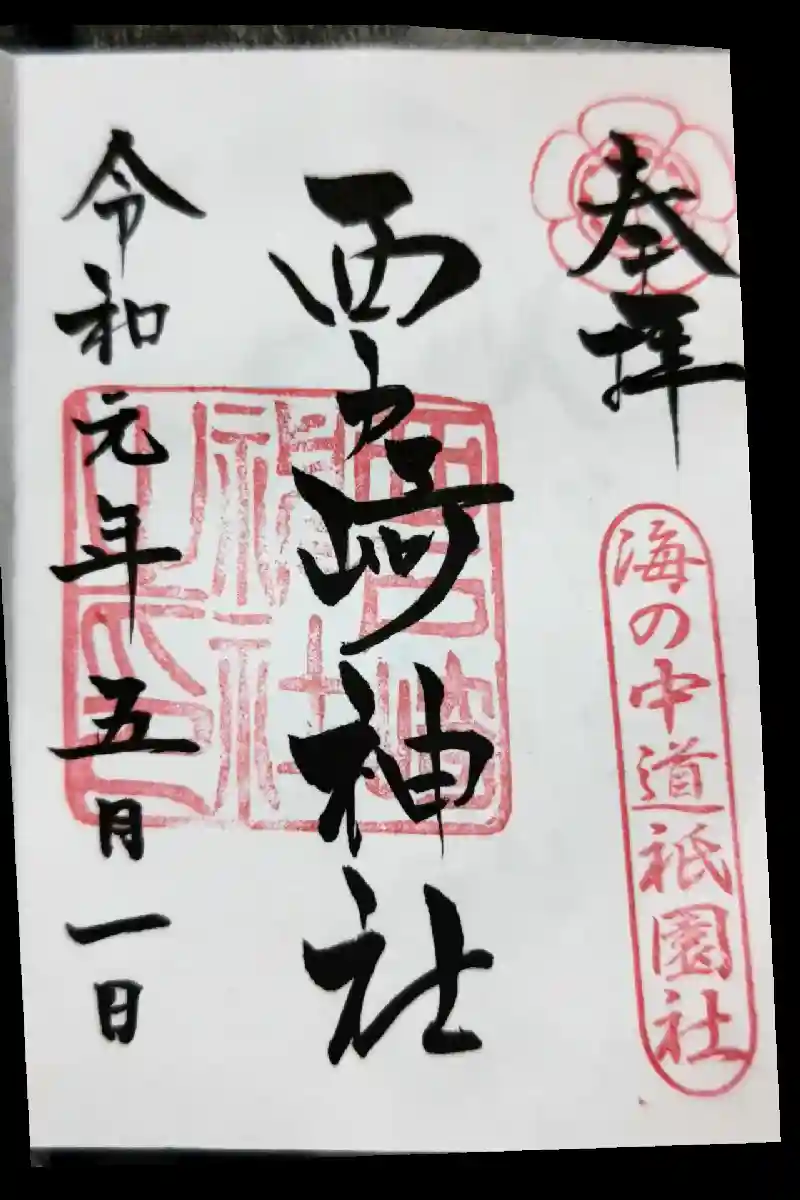 奉拝
海の中道祇園社
西戸崎神社
西戸崎
神社
之印
令和元年五月一日